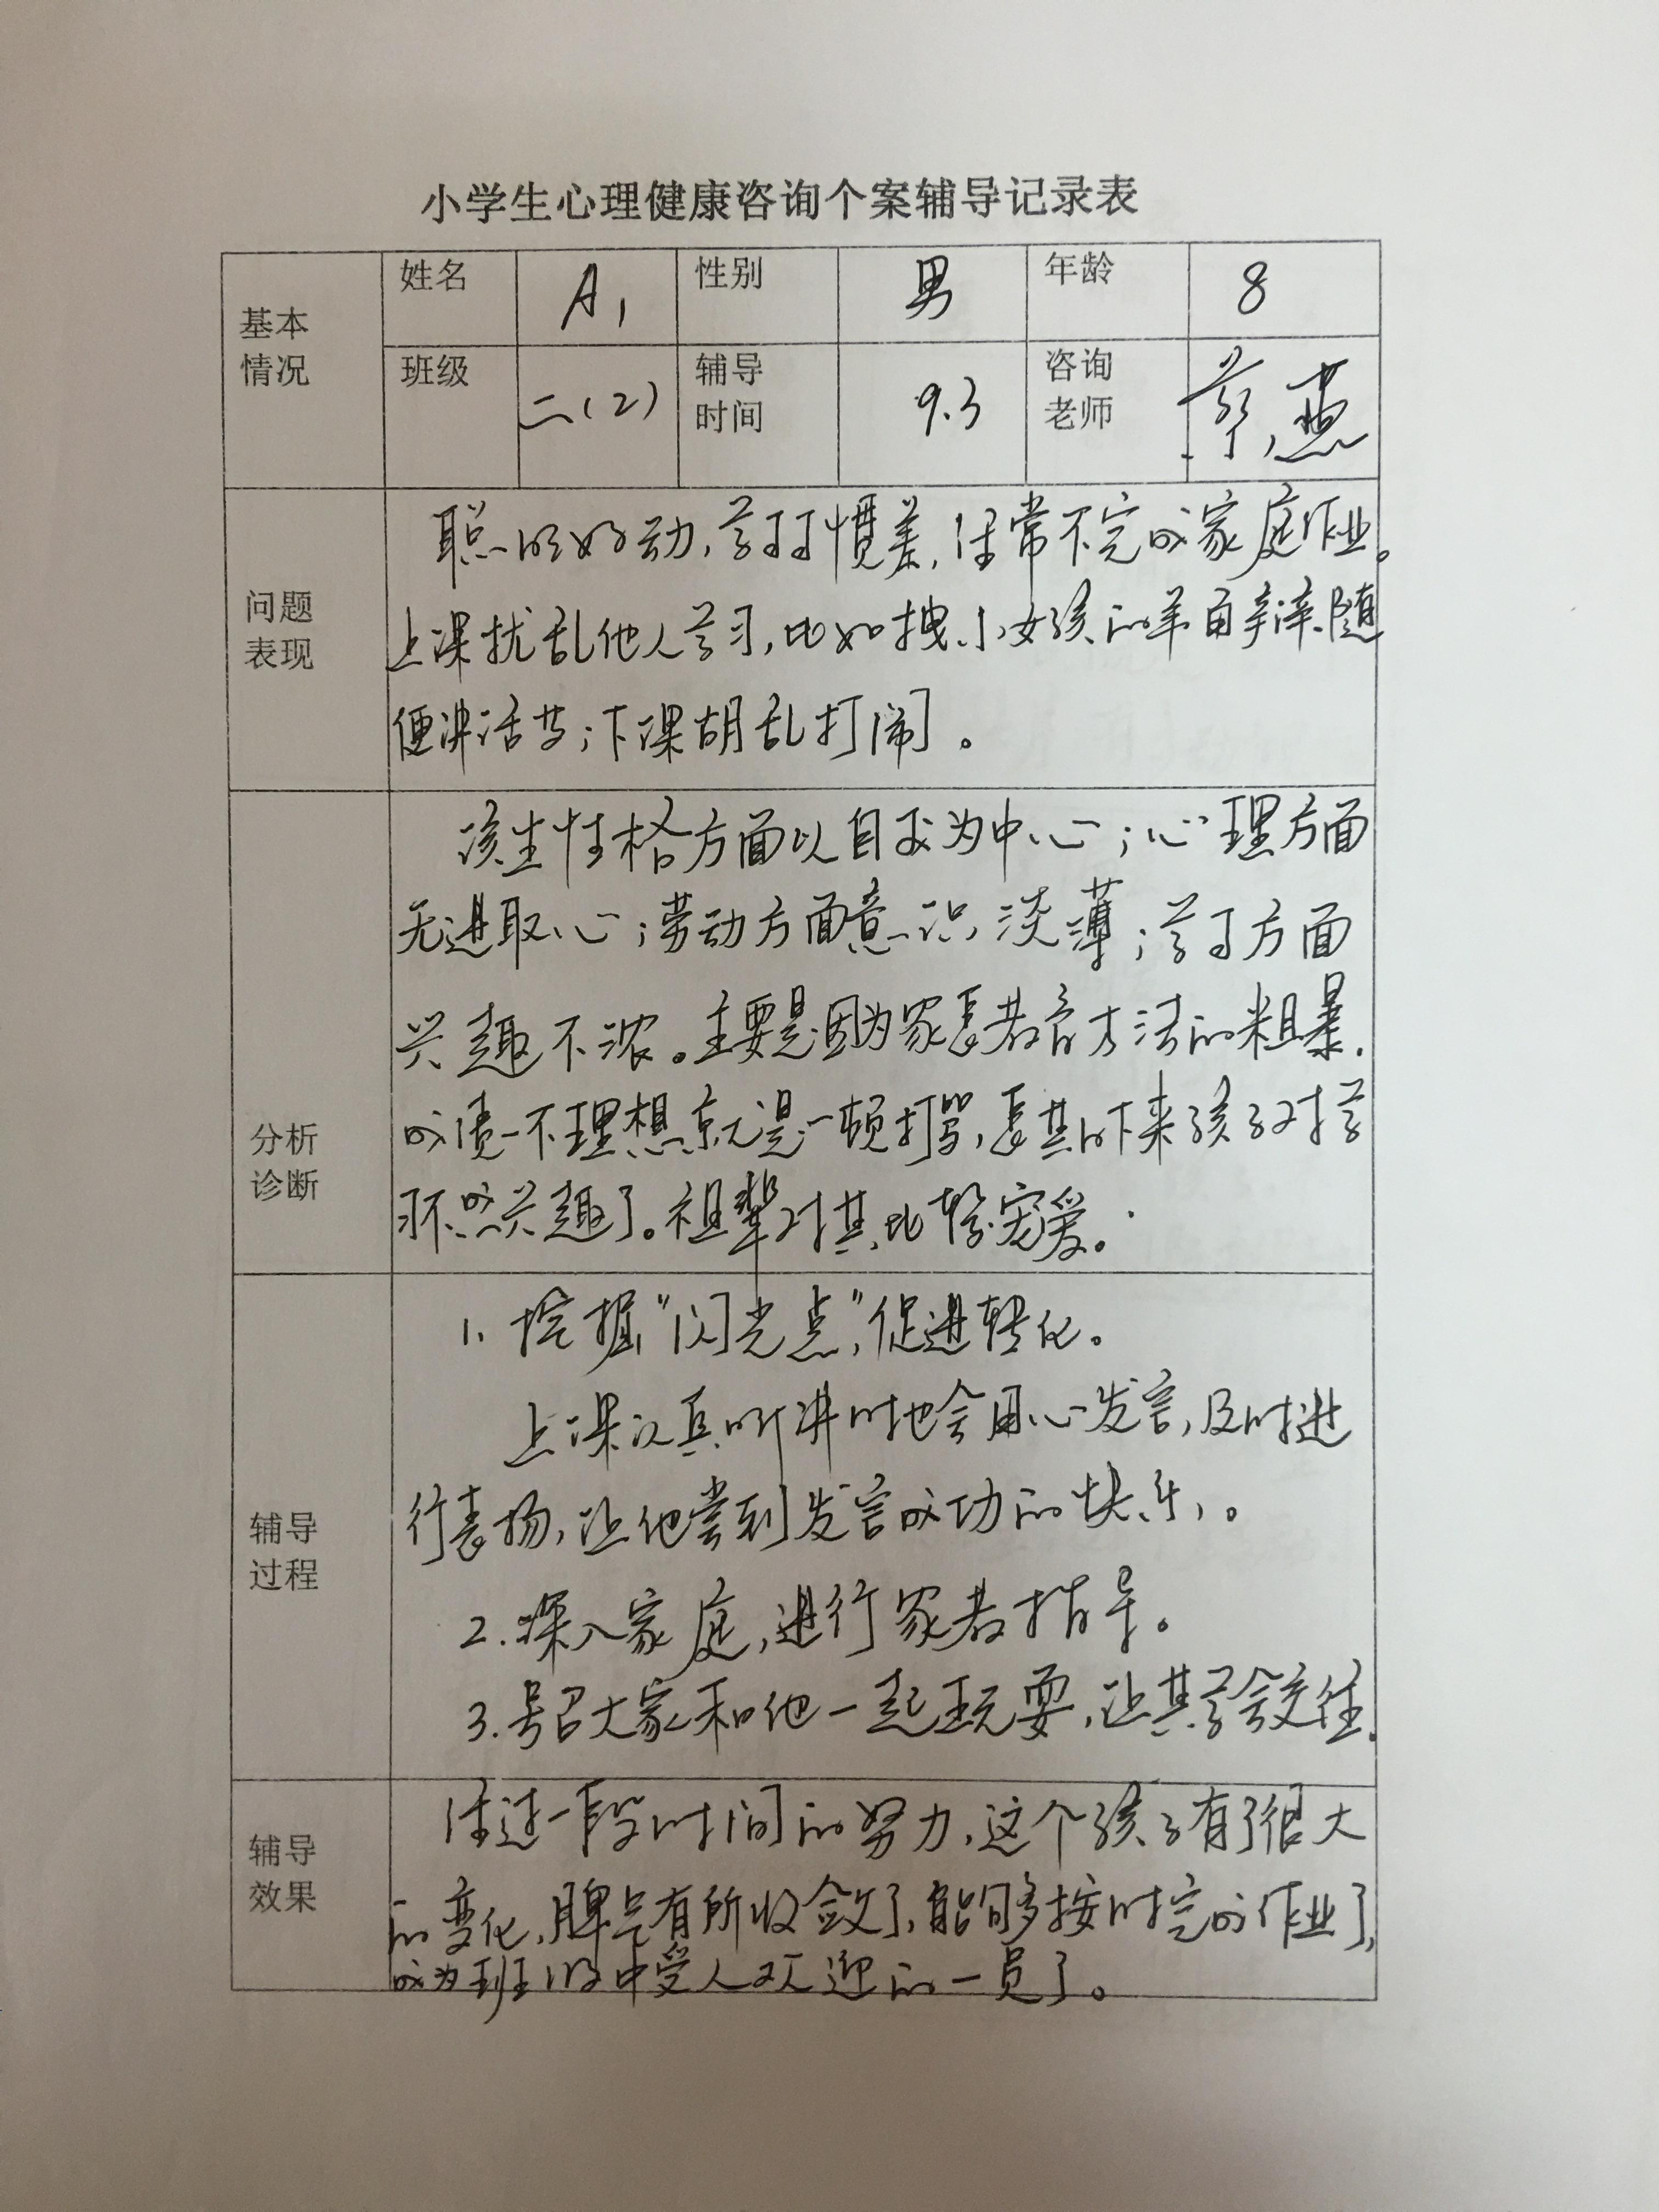 小学生心理健康咨询个案辅导记录表
基本情况 姓名 A1 性别 男 年龄 8
班级 二(2) 辅导时间 9.3 咨询老师 蔡燕
问题表现
聪明好动,学习习惯差,经常不完成家庭作业。
上课扰乱他人学习,比如拽小女孩的羊角辫、随
便讲话等;下课胡乱打闹。
分析诊断
该生性格方面以自我为中心;心理方面
无进取心;劳动方面意识淡薄;学习方面
兴趣不浓。主要是因为家长教育方法的粗暴.
成绩一不理想就是一顿打骂,长期以下来孩子对学
习不感兴趣了。祖辈对其比较宠爱。
辅导过程
1、挖掘“闪光点”,促进转化。
上课认真听讲时他会用心发言,及时进
行表扬,让他尝到发言成功的快乐,。
2.深入家庭,进行家教指导。
3.号召大家和他一起玩耍,让其学会交往.
辅导效果
经过一段时间的努力,这个孩子有了很大
的变化,脾气有所收敛了,能够按时完成作业了,
成为班级中受人欢迎的一员了。